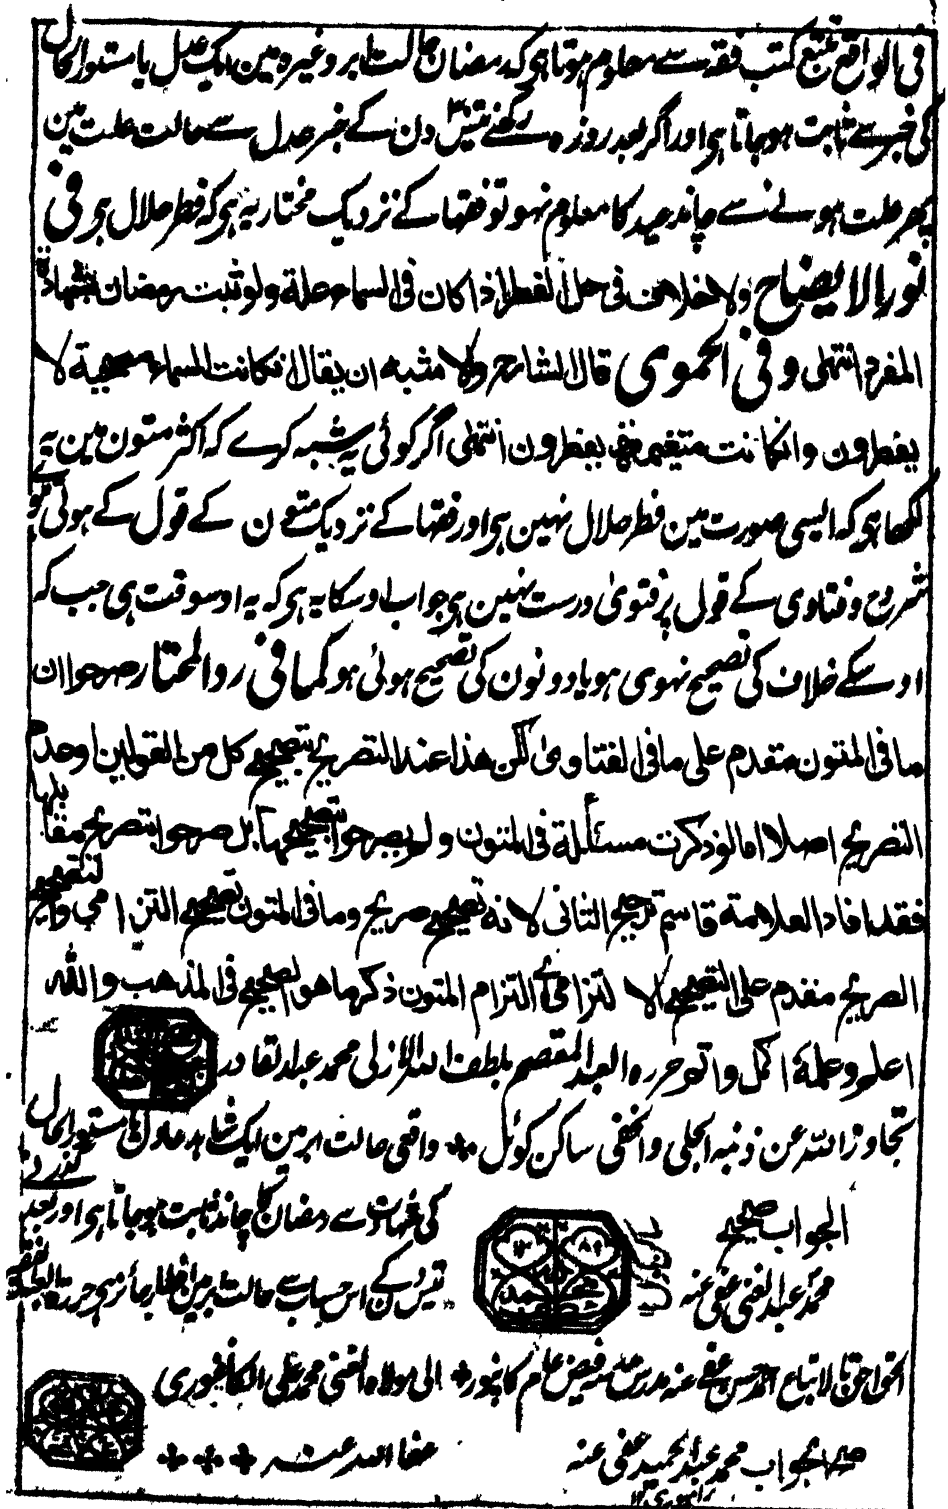 فی الواقع تتبع کتب فقہ سے معلوم ہوتا ہی کہ رمضان حالت ابر وغیرہ مین ایک عدل یا مستور الحال
کی خبر سے ثابت ہوجاتا ہی اور اگر بعد روزہ رکھنے تیس ۳۰ دن کے خبر عدل سے حالت علت مین
پھر علت ہونے سے چاند عید کا معلوم نہو تو فقہا کے نزدیک مختار یہ ہی کہ فطر حلال ہی وفی
نور الایضاح ولا خلاف فی حل الفطر اذا کان فی السماء علة ولو ثبت رمضان بشهادة
المفرد انتهی وفی الحموی قال الشارح والاشبه ان یقال ان کانت السماء مصحیة لا
یفطرون وان کانت متغیمة یفطرون انتهی اگر کوئی یہ شبہ کرے کہ اکثر متون مین یہ
لکھا ہی کہ ایسی صورت مین فطر حلال نہین ہی اور فقہا کے نزدیک متون کے قول کے ہوتے ہوئے
شروح وفتاوی کے قول پر فتوی درست نہین ہی جواب اوسکا یہ ہی کہ یہ اوسوقت ہی جب کہ
اوسکے خلاف کی تصحیح نہوی ہو یا دونون کی تصحیح ہوئی ہو کما فی رد المحتار صرحوا ان
ما فی المتون متقدم علی ما فی الفتاوی لکن هذا عند التصریح بتصحیح کل من القولین او عدم
التصریح اصلا اما لو ذکرت مسئلة فی المتون ولم یصرحوا بتصحیحها بل صرحوا بتصریح مقابلها
فقد افاد العلامة قاسم ترجیح الثانی لانه تصحیح صریح وما فی المتون تصحیح التزامی والتصحیح
الصریح مقدم علی التصحیح الالتزامی ای التزام المتون ذکر ما هو الصحیح فی المذهب والله
اعلم وعلمه اکمل واتم حرره العبد المعتصم بلطف الله الازلی محمد عبد القادر
تجاوز الله عن ذنبه الجلی والخفی ساکن کوئل ❖ واقعی حالت ابر مین ایک شاہد عادل یا مستور الحال
کی شہادت سے رمضان کا چاند ثابت ہوجاتا ہی اور بعد گذرنے
تیس دن کے اس حساب سے حالت ابر مین افطار جائز ہی حررہ العبد المفتقر
الجواب صحیح
محمد عبد الغنی عفی عنه
احقر احمد حسن عفی عنه مدرس مدرسہ فیض عام کانپور ❖ الی مولاه الغنی محمد علی الکانفوری
صح الجواب محمد عبد الحمید عفی عنه
رامپوری
عفا الله عنه ❖ ❖ ❖